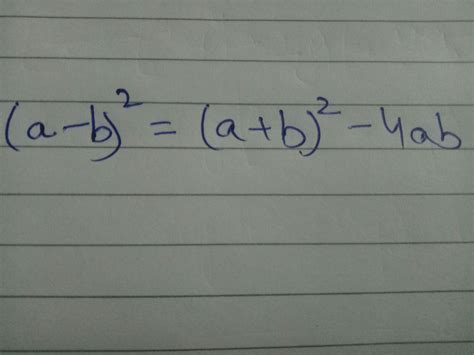 (a-b)² = (a+b)² - 4ab